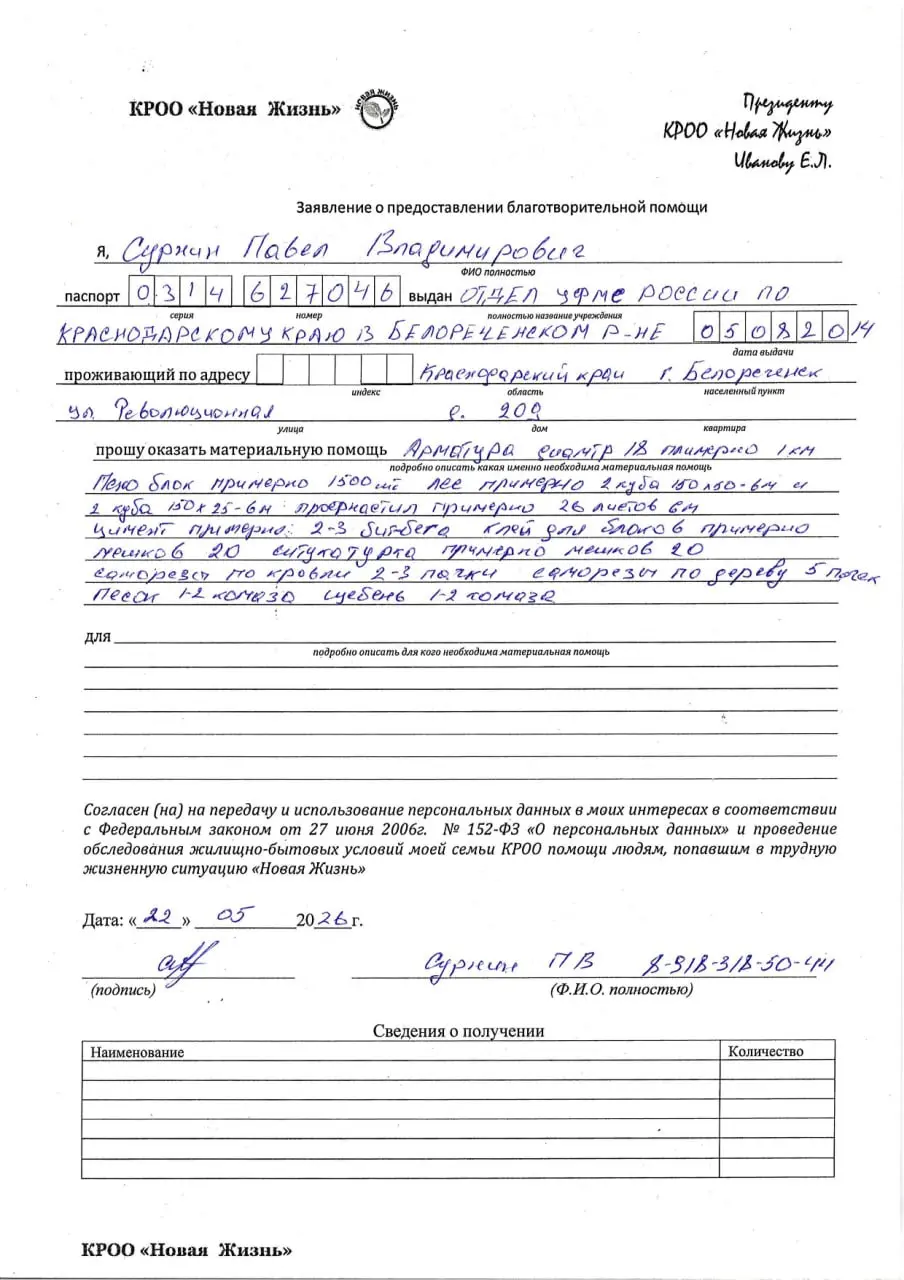 КРОО «Новая Жизнь» НОВАЯ ЖИЗНЬ
Президенту
КРОО «Новая Жизнь»
Иванову Е.Л.
Заявление о предоставлении благотворительной помощи
Я, Суркин Павел Владимирович
ФИО полностью
паспорт 0314 627046 выдан ОТДЕЛ УФМС РОССИИ ПО
серия номер полностью название учреждения
КРАСНОДАРСКОМУ КРАЮ В БЕЛОРЕЧЕНСКОМ Р-НЕ 05082014
дата выдачи
проживающий по адресу Краснодарский край г. Белореченск
индекс область населенный пункт
ул. Революционная д. 209
улица дом квартира
прошу оказать материальную помощь Арматура диамтр 18 плимерно 1 км
подробно описать какая именно необходима материальная помощь
Пено блок примерно 1500 шт лес примерно 2 куба 150х50-6м и
2 куба 150х25-6м примерно 26 листов 6м
цимент примерно: 2-3 биг-бега клей для блоков примерно
мешков 20 примерно мешков 20
саморезы по кровли 2-3 пачки саморезы по дереву 5 пачак
Песок 1-2 комаза щебень 1-2 комаза
для
подробно описать для кого необходима материальная помощь
Согласен (на) на передачу и использование персональных данных в моих интересах в соответствии
с Федеральным законом от 27 июня 2006г. № 152-ФЗ «О персональных данных» и проведение
обследования жилищно-бытовых условий моей семьи КРОО помощи людям, попавшим в трудную
жизненную ситуацию «Новая Жизнь»
Дата: «22» 05 2026 г.
Суркин П В 8-918-318-50-44
(подпись) (Ф.И.О. полностью)
Сведения о получении
Наименование Количество
КРОО «Новая Жизнь»